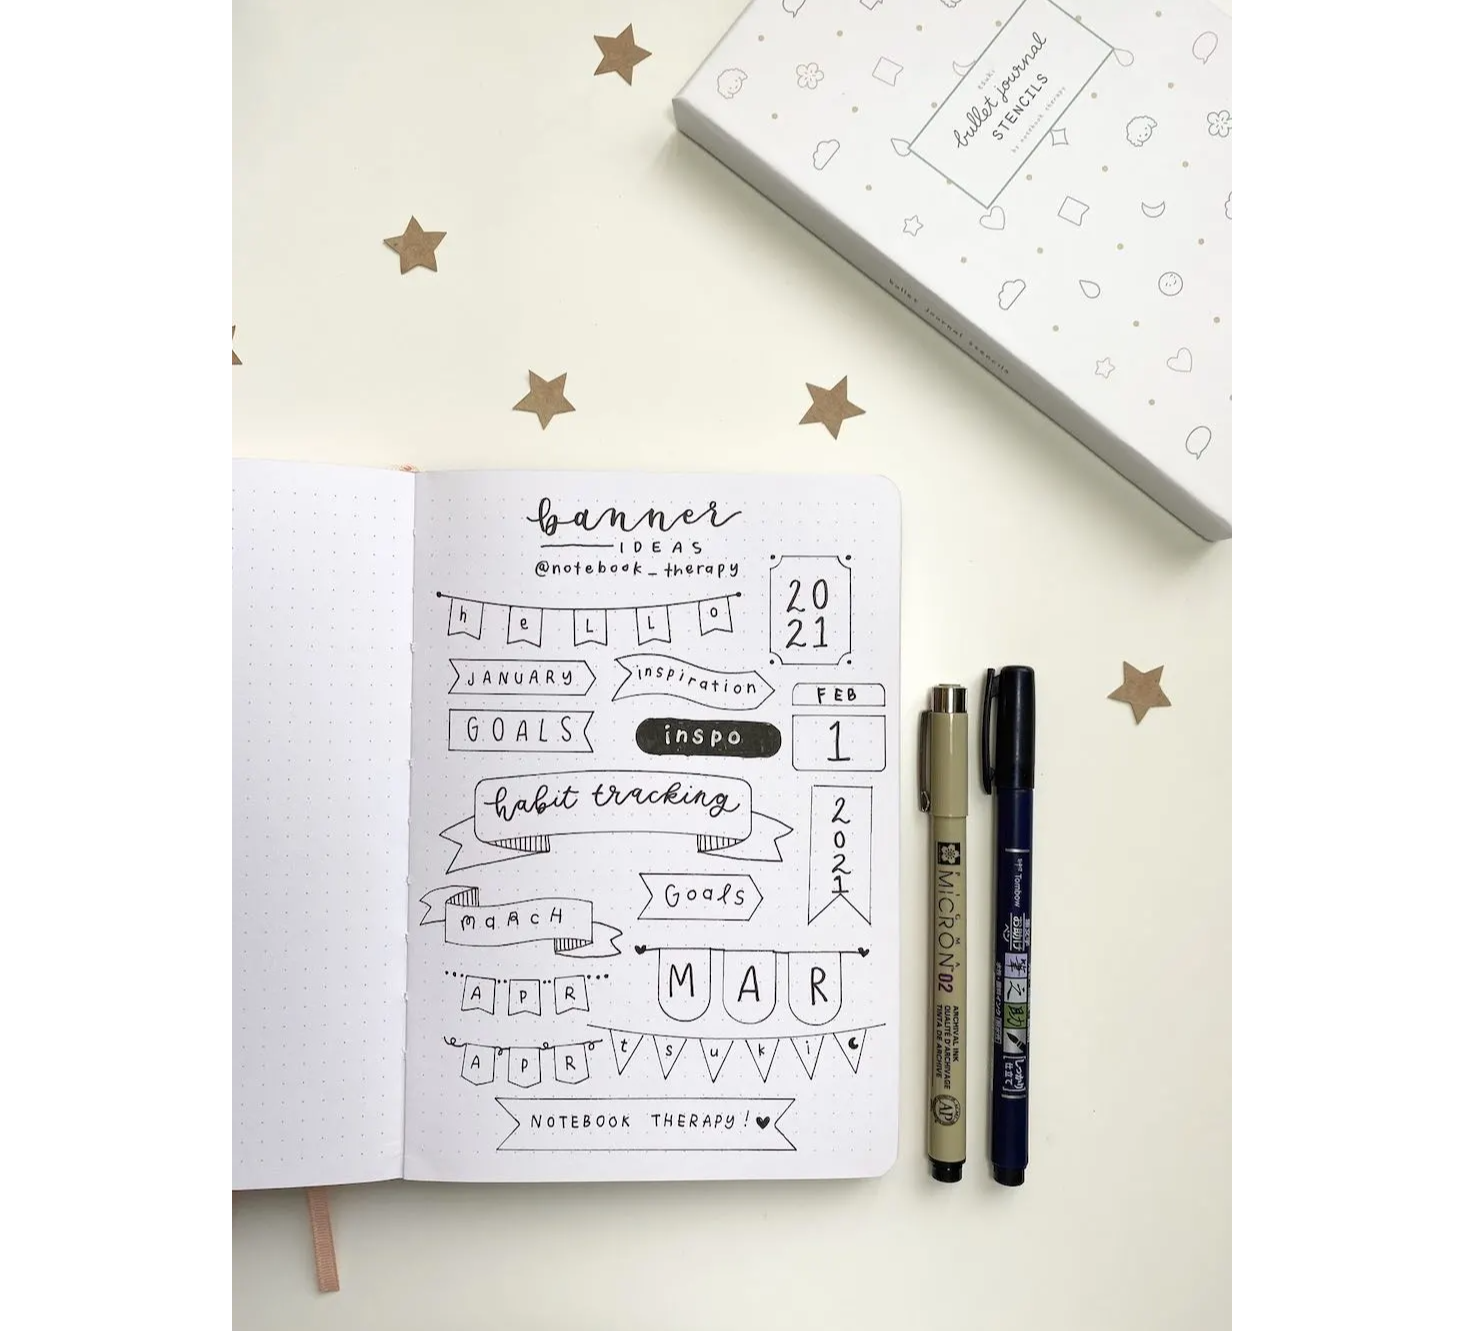 tsuki
bullet journal
STENCILS
by notebook therapy
bullet journal stencils
banner
IDEAS
@notebook_therapy
20
21
heLLo
JANUARY
inspiration
FEB
1
GOALS
inspo
habit tracking
2
0
2
1
Goals
maRcH
MAR
APR
APR
tsuki
NOTEBOOK THERAPY!
PIGMA
MICRON 02
ARCHIVAL INK
QUALITÉ D'ARCHIVAGE
TINTA DE ARCHIVE
AP
Tombow
筆之助
しっかり
仕立て